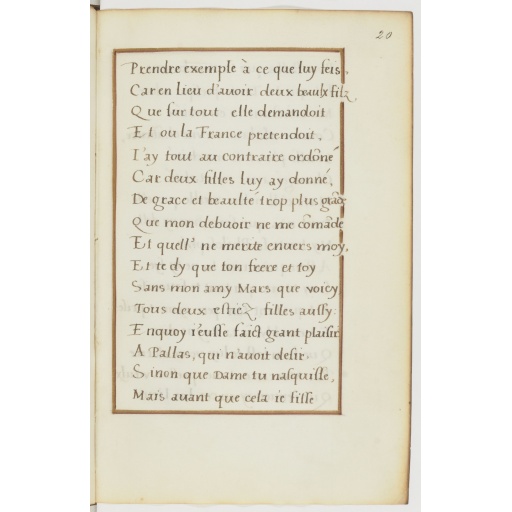 20
Prendre exemple à ce que luy feis.
Car en lieu d'auoir deux beaulx filz
Que sur tout elle demandoit
Et ou la France prétendoit.
I'ay tout au contraire ordōné
Car deux filles luy ay donné.
De grace et beaulté trop plus grāde
Que mon debuoir ne me cōmāde
Et quell' ne merite enuers moy.
Et te dy que ton frere et toy
Sans mon amy Mars que voicy
Tous deux estiez filles aussy.
Enquoy i'eusse faict grant plaisir
A Pallas, qui n'auoit desir.
Sinon que Dame tu nasquisse,
Mais auant que cela ie fisse